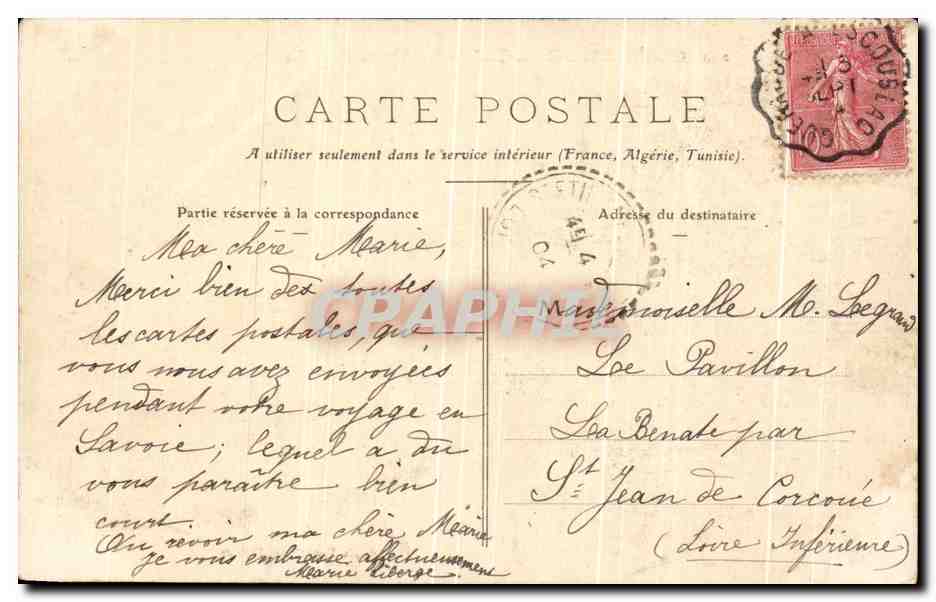 CARTE POSTALE
A utiliser seulement dans le service intérieur (France, Algérie, Tunisie).
Partie réservée à la correspondance
Ma chère Marie,
Merci bien des toutes
les cartes postales, que
vous nous avez envoyées
pendant votre voyage en
Savoie; lequel a du
vous paraître bien
court.
Au revoir ma chère Marie
je vous embrasse affectueusement
Marie Liberge.
Adresse du destinataire
Mademoiselle M. Legrand
Le Pavillon
La Benate par
St Jean de Corcoué
(Loire Inférieure)
ESCOUBLAC
04
CPAPHIL